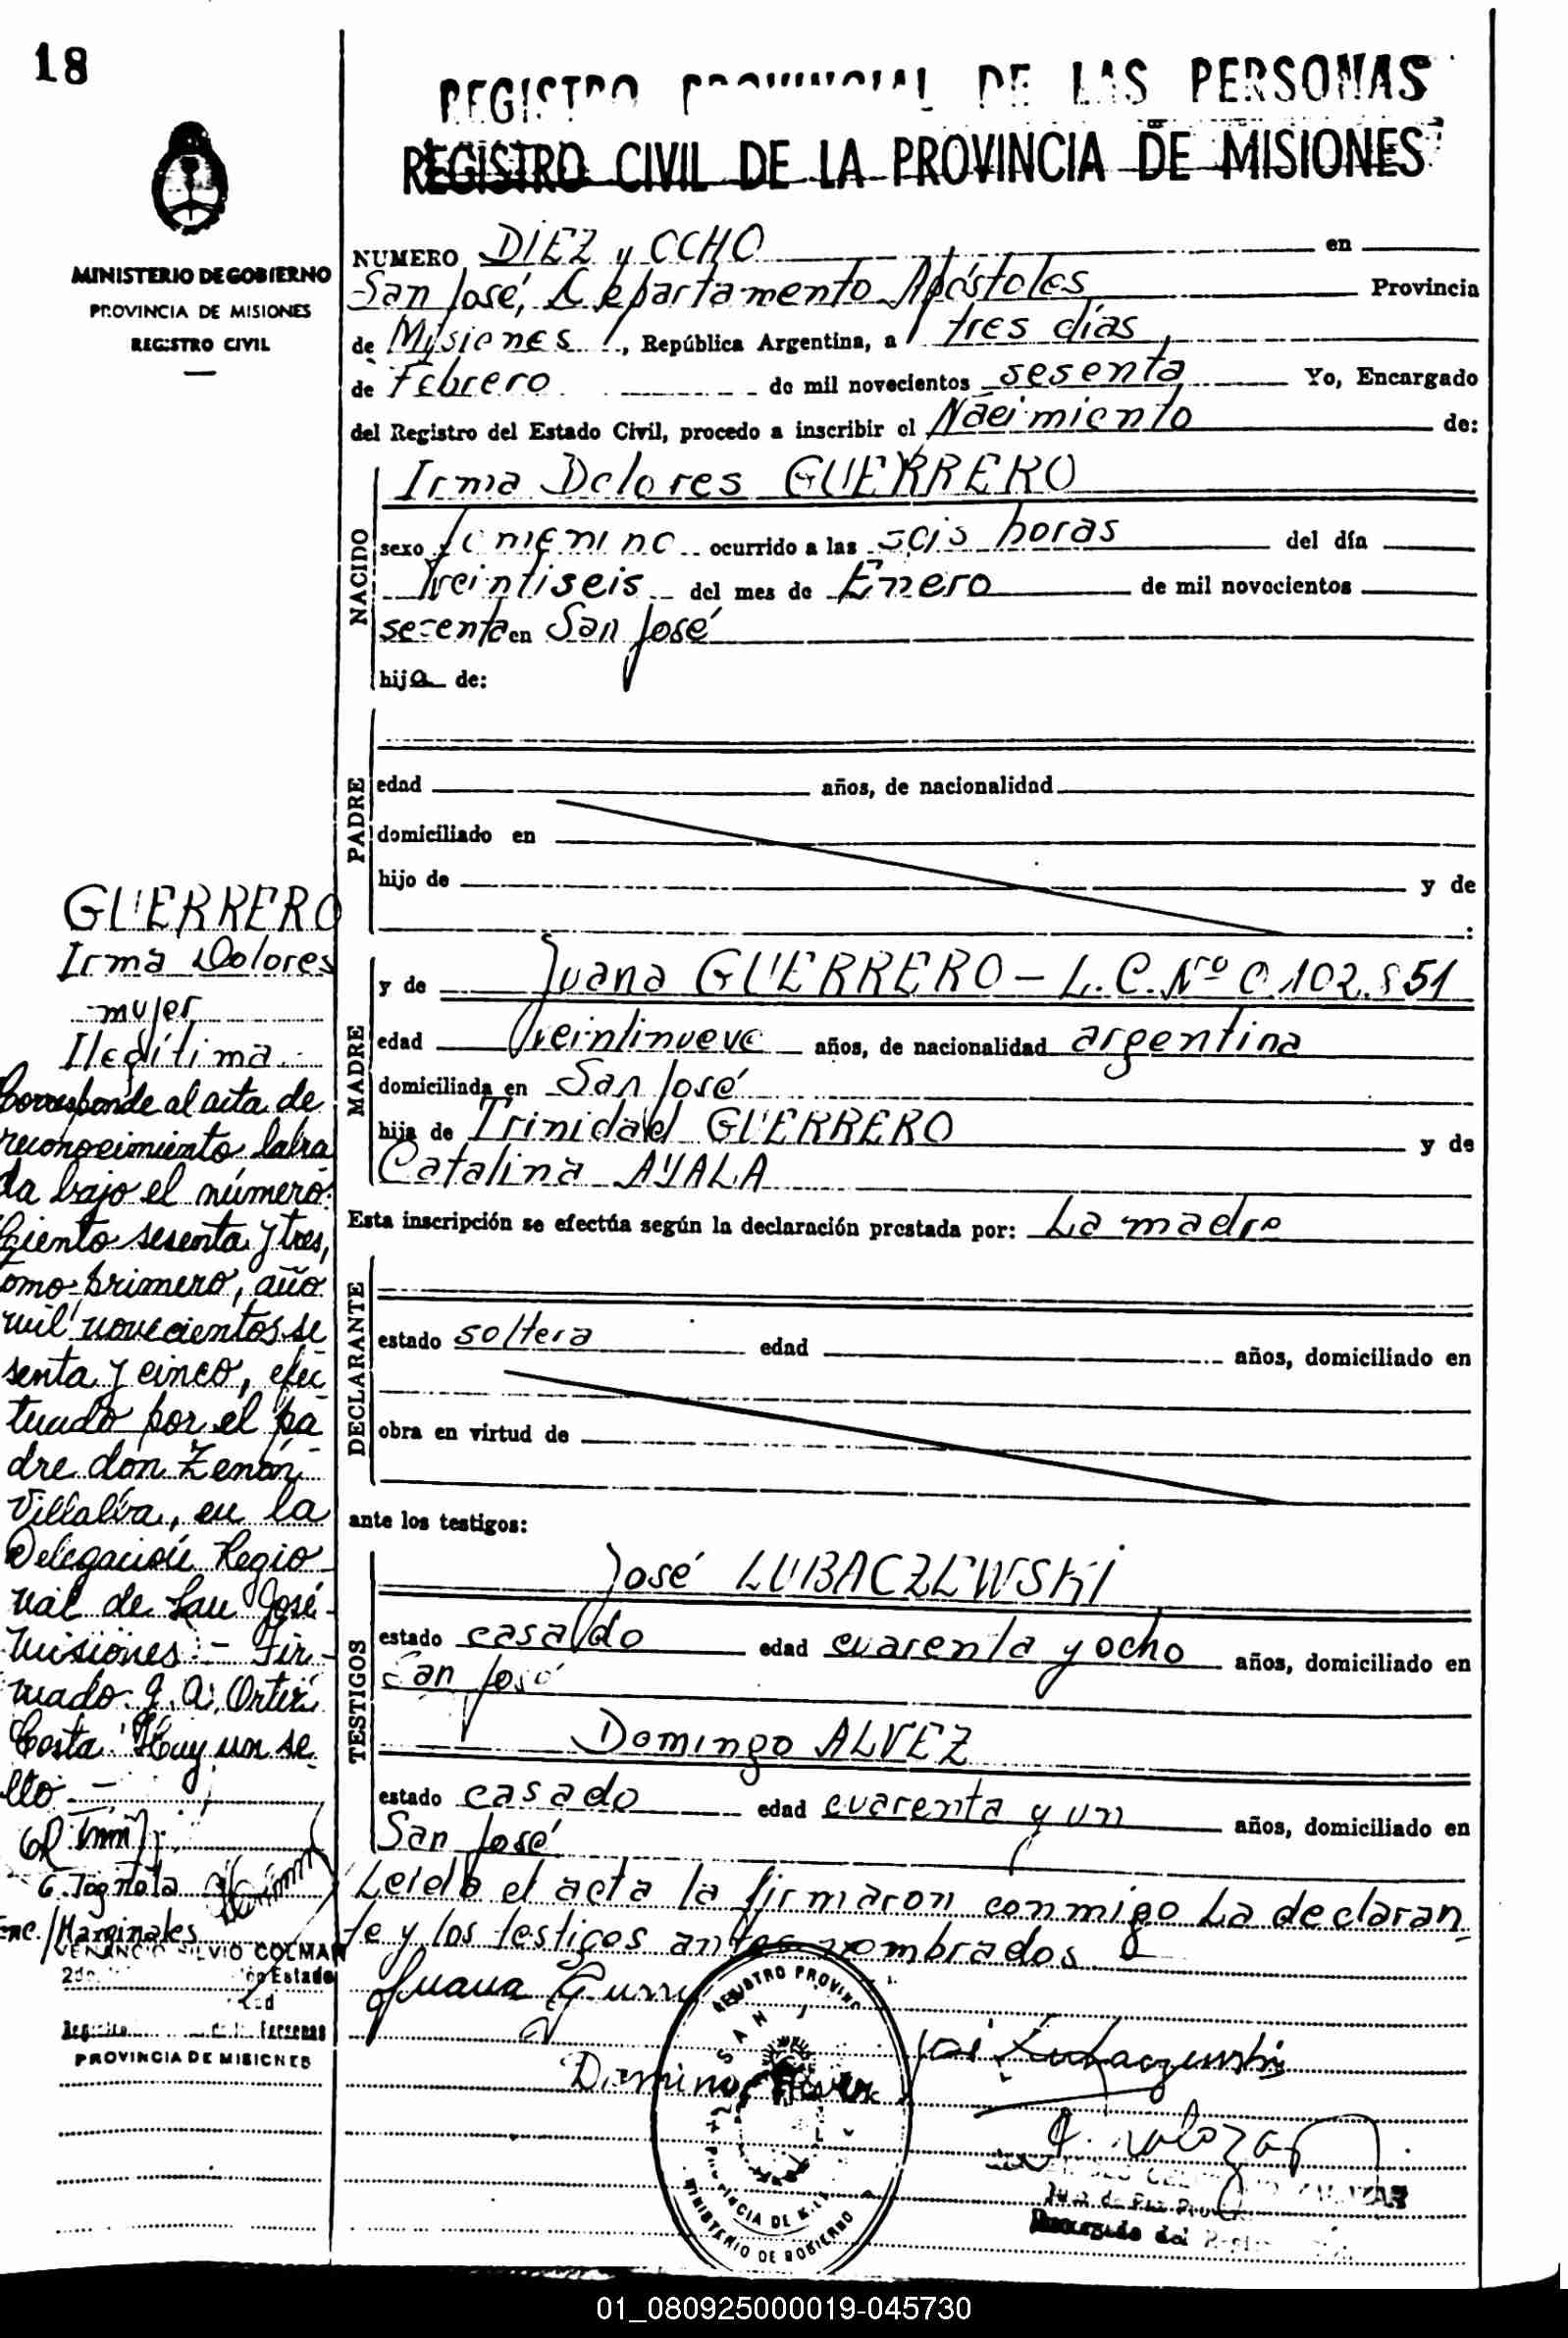 18
REGISTRO PROVINCIAL DE LAS PERSONAS
REGISTRO CIVIL DE LA PROVINCIA DE MISIONES
MINISTERIO DE GOBIERNO
PROVINCIA DE MISIONES
REGISTRO CIVIL
NUMERO DIEZ y OCHO en
San José, Departamento Apóstoles Provincia
de Misiones, República Argentina, a tres días
de Febrero de mil novecientos sesenta Yo, Encargado
del Registro del Estado Civil, procedo a inscribir el Nacimiento de:
NACIDO
Irma Dolores GUERRERO
sexo femenino ocurrido a las seis horas del día
Treintiseis del mes de Enero de mil novecientos
sesenta en San José
hija de:
PADRE
edad años, de nacionalidad
domiciliado en
hijo de y de
:
MADRE
y de Juana GUERRERO - L.C. Nro 0.102.851
edad treintinueve años, de nacionalidad argentina
domiciliada en San José
hija de Trinidad GUERRERO y de
Catalina AYALA
Esta inscripción se efectúa según la declaración prestada por: La madre
DECLARANTE
estado soltera edad años, domiciliado en
obra en virtud de
ante los testigos:
TESTIGOS
José LUBACZEWSKI
estado casado edad cuarenta y ocho años, domiciliado en
San José
Domingo ALVEZ
estado casado edad cuarenta y un años, domiciliado en
San José
Leida el acta la firmaron conmigo la declaran
te y los testigos antes nombrados
Juana
Domingo Alvez
José Lubaczewski
REGISTRO PROVINC
SAN J
PROVINCIA DE MI
MINISTERIO DE GOBIERNO
Juez de Paz
Encargado del
GUERRERO
Irma Dolores
mujer
Ilegítima
Corresponde al acta de
reconocimiento labra
da bajo el número
Ciento sesenta y tres,
tomo primero, año
mil novecientos se
senta y cinco, efec
tuado por el pa
dre don Zenón
Villalba, en la
Delegación Regio
nal de San José
Misiones - Fir
mado G. A. Ortiz
Costa Hay un se
llo -
G. Tognola
Enc./Marginales
VENANCIO SILVIO COLMAN
Estado
Personas
PROVINCIA DE MISIONES
01_080925000019-045730